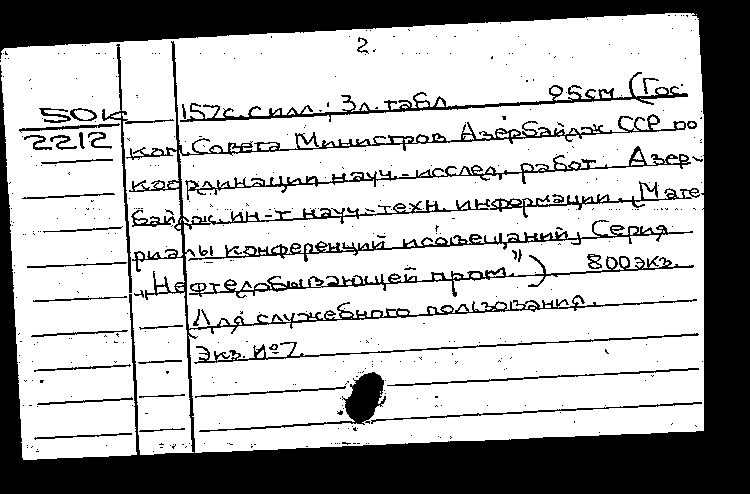 2.
50к
2212
157с. с илл.; 3л. табл. 25см. (Гос.
ком. Совета Министров Азербайдж. ССР по
координации науч.-исслед. работ. Азер-
байдж. ин-т науч.-техн. информации. Мате-
риалы конференций и совещаний, Серия
„Нефтедобывающей пром.") 800экз.
(Для служебного пользования.
Экз. №7.